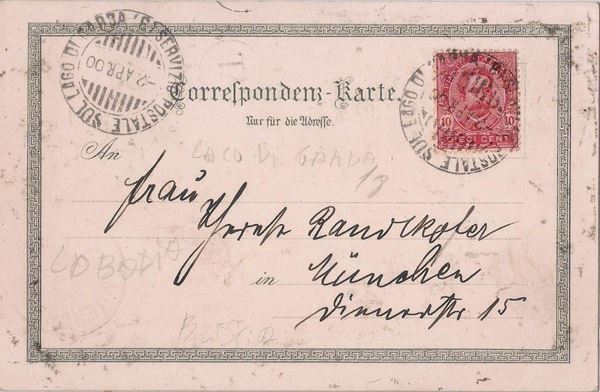 SERVIZIO POSTALE SUL LAGO DI GARDA
2 APR. 00
SERVIZIO POSTALE SUL LAGO DI GARDA
10 10
CENT
Correspondenz-Karte.
Nur für die Adresse.
LAGO DI GARDA
18
An Frau
Therese Randlkofer
LOBODIA
in München
Dienerstr 15